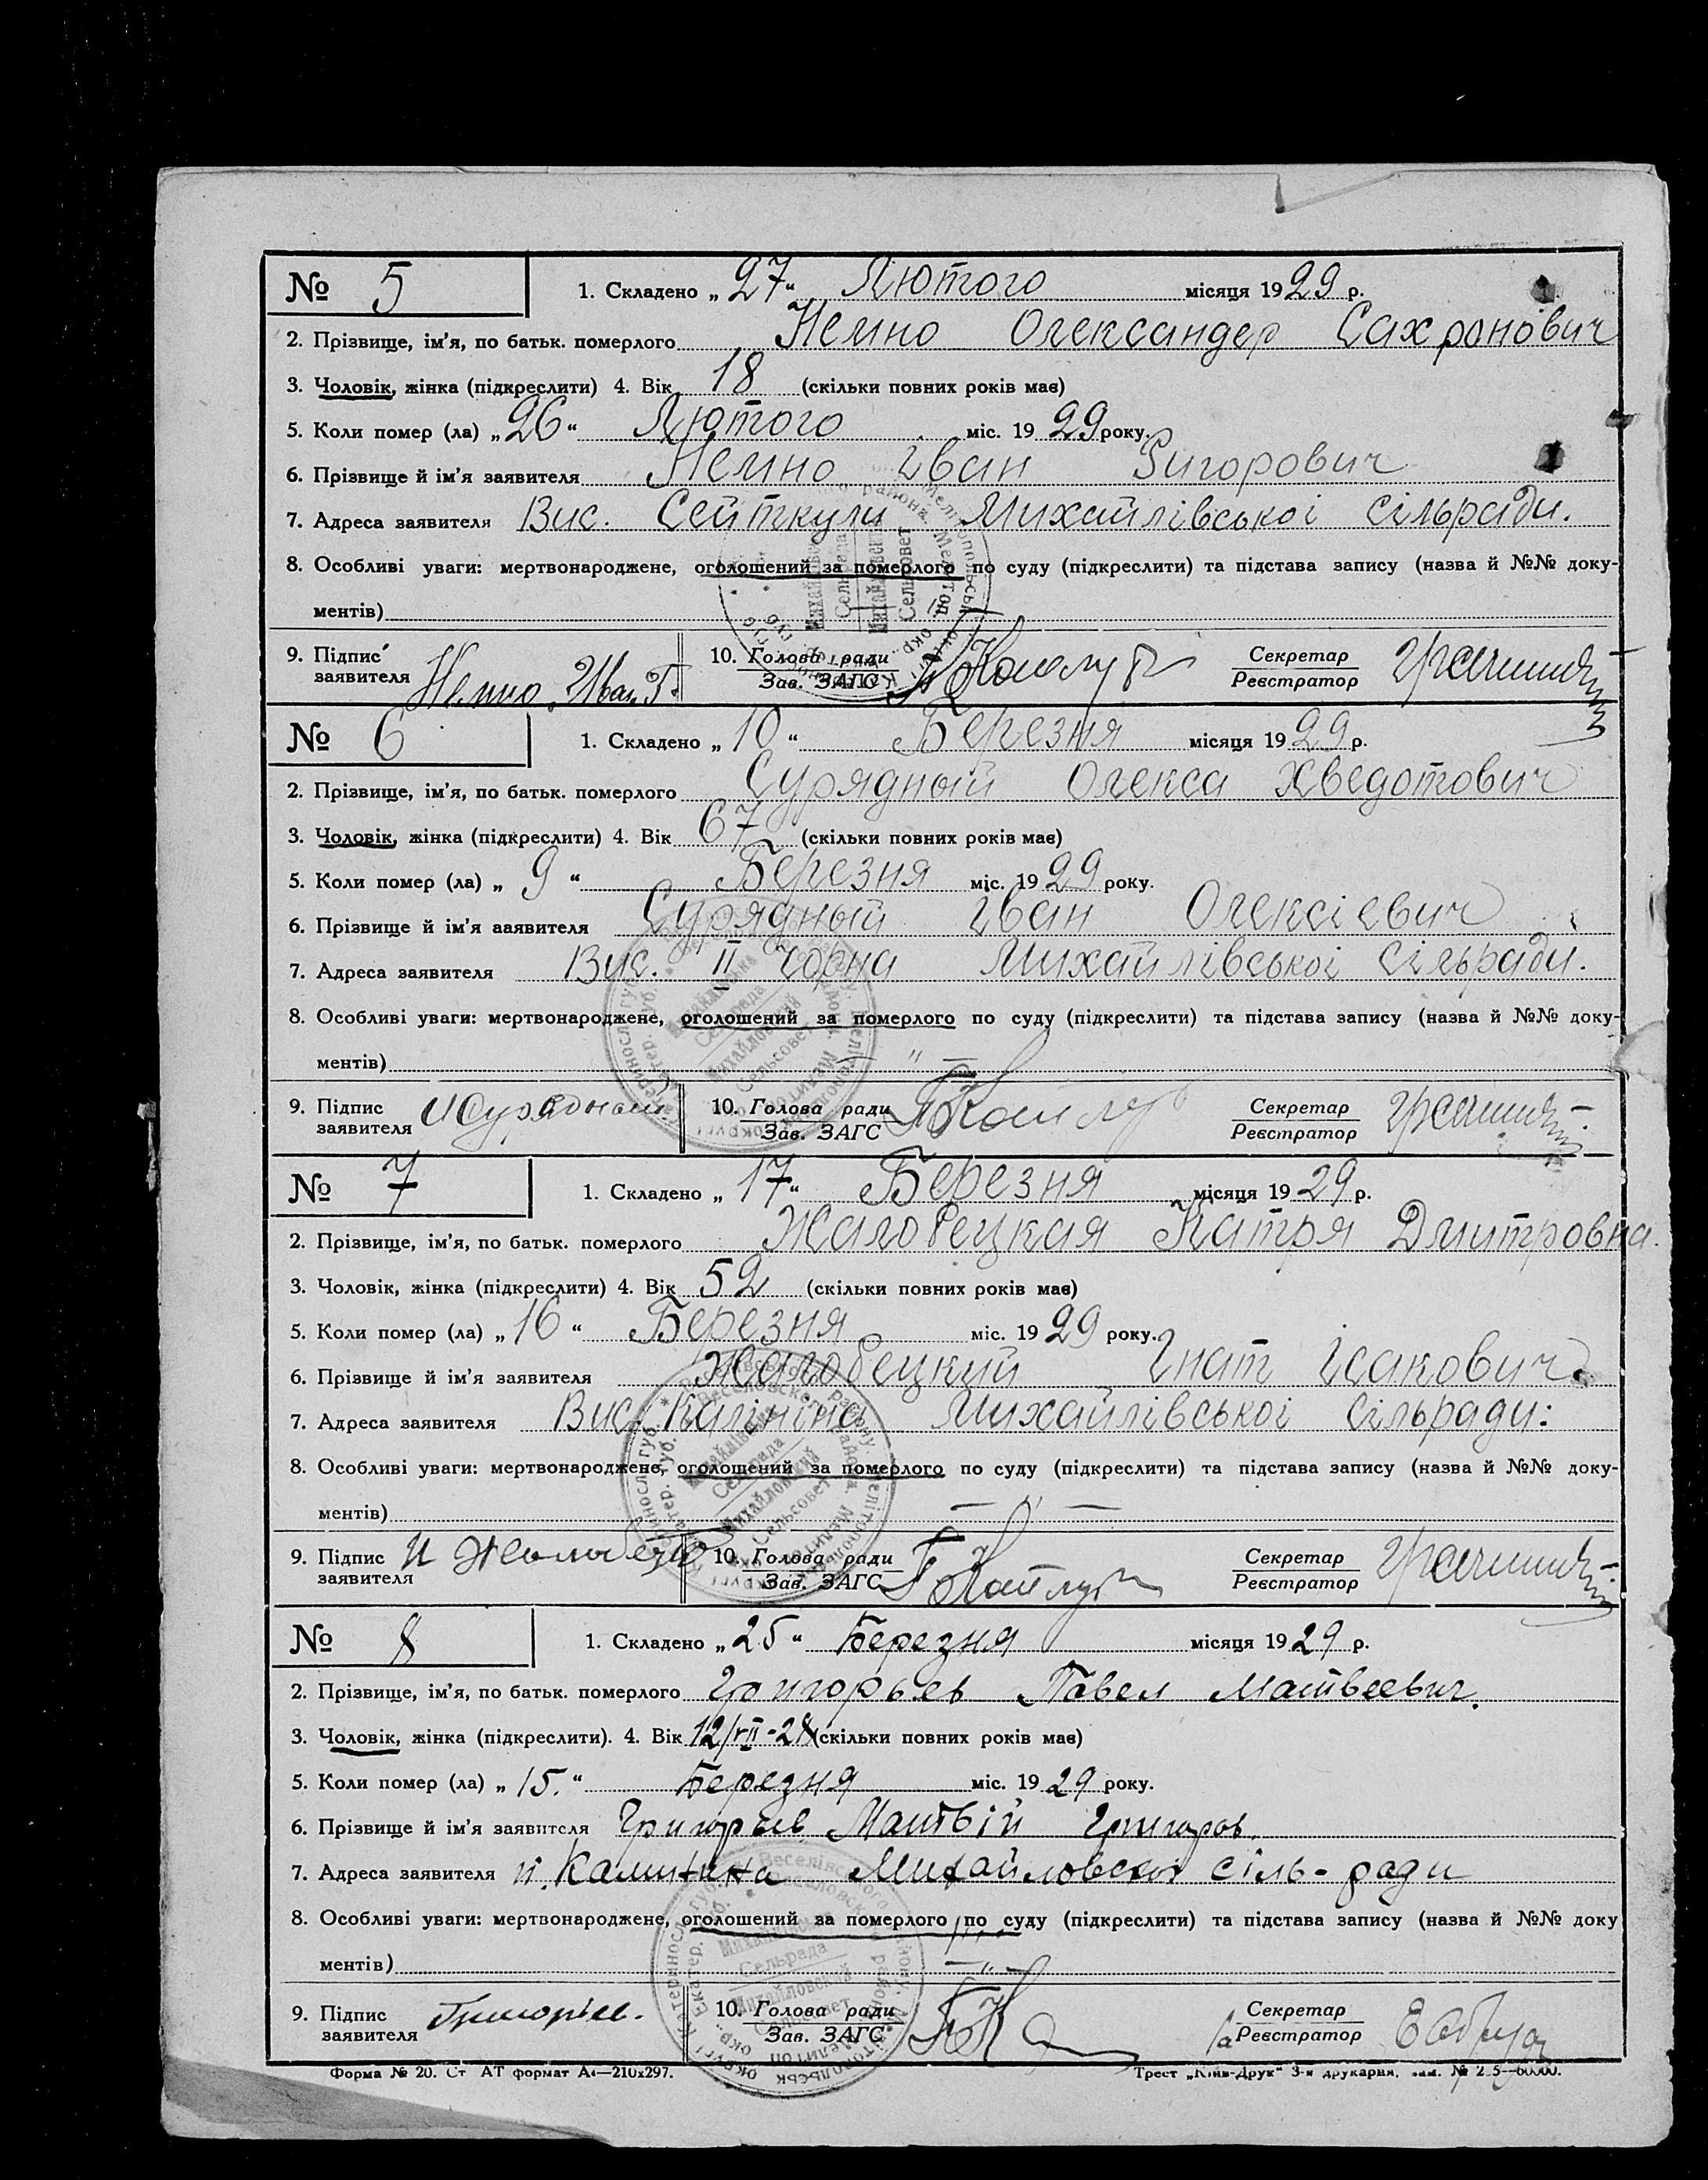 № 5 1. Складено „27“ Лютого місяця 1929 р.
2. Прізвище, ім'я, по батьк. померлого Немно Олександер Сахронович
3. Чоловік, жінка (підкреслити) 4. Вік 18 (скільки повних років має)
5. Коли помер (ла) „26“ Лютого міс. 1929 року.
6. Прізвище й ім'я заявителя Немно Іван Григорович
7. Адреса заявителя Вис. Сейткули Михайлівської сільради.
8. Особливі уваги: мертвонароджене, оголошений за померлого по суду (підкреслити) та підстава запису (назва й №№ доку-
ментів)
9. Підпис заявителя Немно Иван Г. 10. Голова ради Зав. ЗАГС Секретар Реєстратор
№ 6 1. Складено „10“ Березня місяця 1929 р.
2. Прізвище, ім'я, по батьк. померлого Сурядный Олекса Хведотович
3. Чоловік, жінка (підкреслити) 4. Вік 67 (скільки повних років має)
5. Коли помер (ла) „9“ Березня міс. 1929 року.
6. Прізвище й ім'я заявителя Сурядный Іван Олексієвич
7. Адреса заявителя Вис. II Чорна Михайлівської Сільради.
8. Особливі уваги: мертвонароджене, оголошений за померлого по суду (підкреслити) та підстава запису (назва й №№ доку-
ментів) — „ —
9. Підпис заявителя И Сурядный 10. Голова ради Зав. ЗАГС Секретар Реєстратор
№ 7 1. Складено „17“ Березня місяця 1929 р.
2. Прізвище, ім'я, по батьк. померлого Жалобецкая Катря Дмитровна.
3. Чоловік, жінка (підкреслити) 4. Вік 52 (скільки повних років має)
5. Коли помер (ла) „16“ Березня міс. 1929 року.
6. Прізвище й ім'я заявителя Жалобецкий Гнат Ісакович.
7. Адреса заявителя Вис. Калініна Михайлівської Сільради:
8. Особливі уваги: мертвонароджене, оголошений за померлого по суду (підкреслити) та підстава запису (назва й №№ доку-
ментів) — „ —
9. Підпис заявителя И 10. Голова ради Зав. ЗАГС Секретар Реєстратор
№ 8 1. Складено „25“ Березня місяця 1929 р.
2. Прізвище, ім'я, по батьк. померлого Григорьев Павел Матвеевич.
3. Чоловік, жінка (підкреслити). 4. Вік 12/VII-28 (скільки повних років має)
5. Коли помер (ла) „15.“ Березня міс. 1929 року.
6. Прізвище й ім'я заявителя Григорьев Матвій Григоров.
7. Адреса заявителя п. Калинина Михайловской сіль-ради
8. Особливі уваги: мертвонароджене, оголошений за померлого по суду (підкреслити) та підстава запису (назва й №№ доку
ментів) — „ —
9. Підпис заявителя Григорьев. 10. Голова ради Зав. ЗАГС Секретар Реєстратор
Форма № 20. Ст АТ формат А4—210х297. Трест „Київ-Друк“ 3-я друкарня,